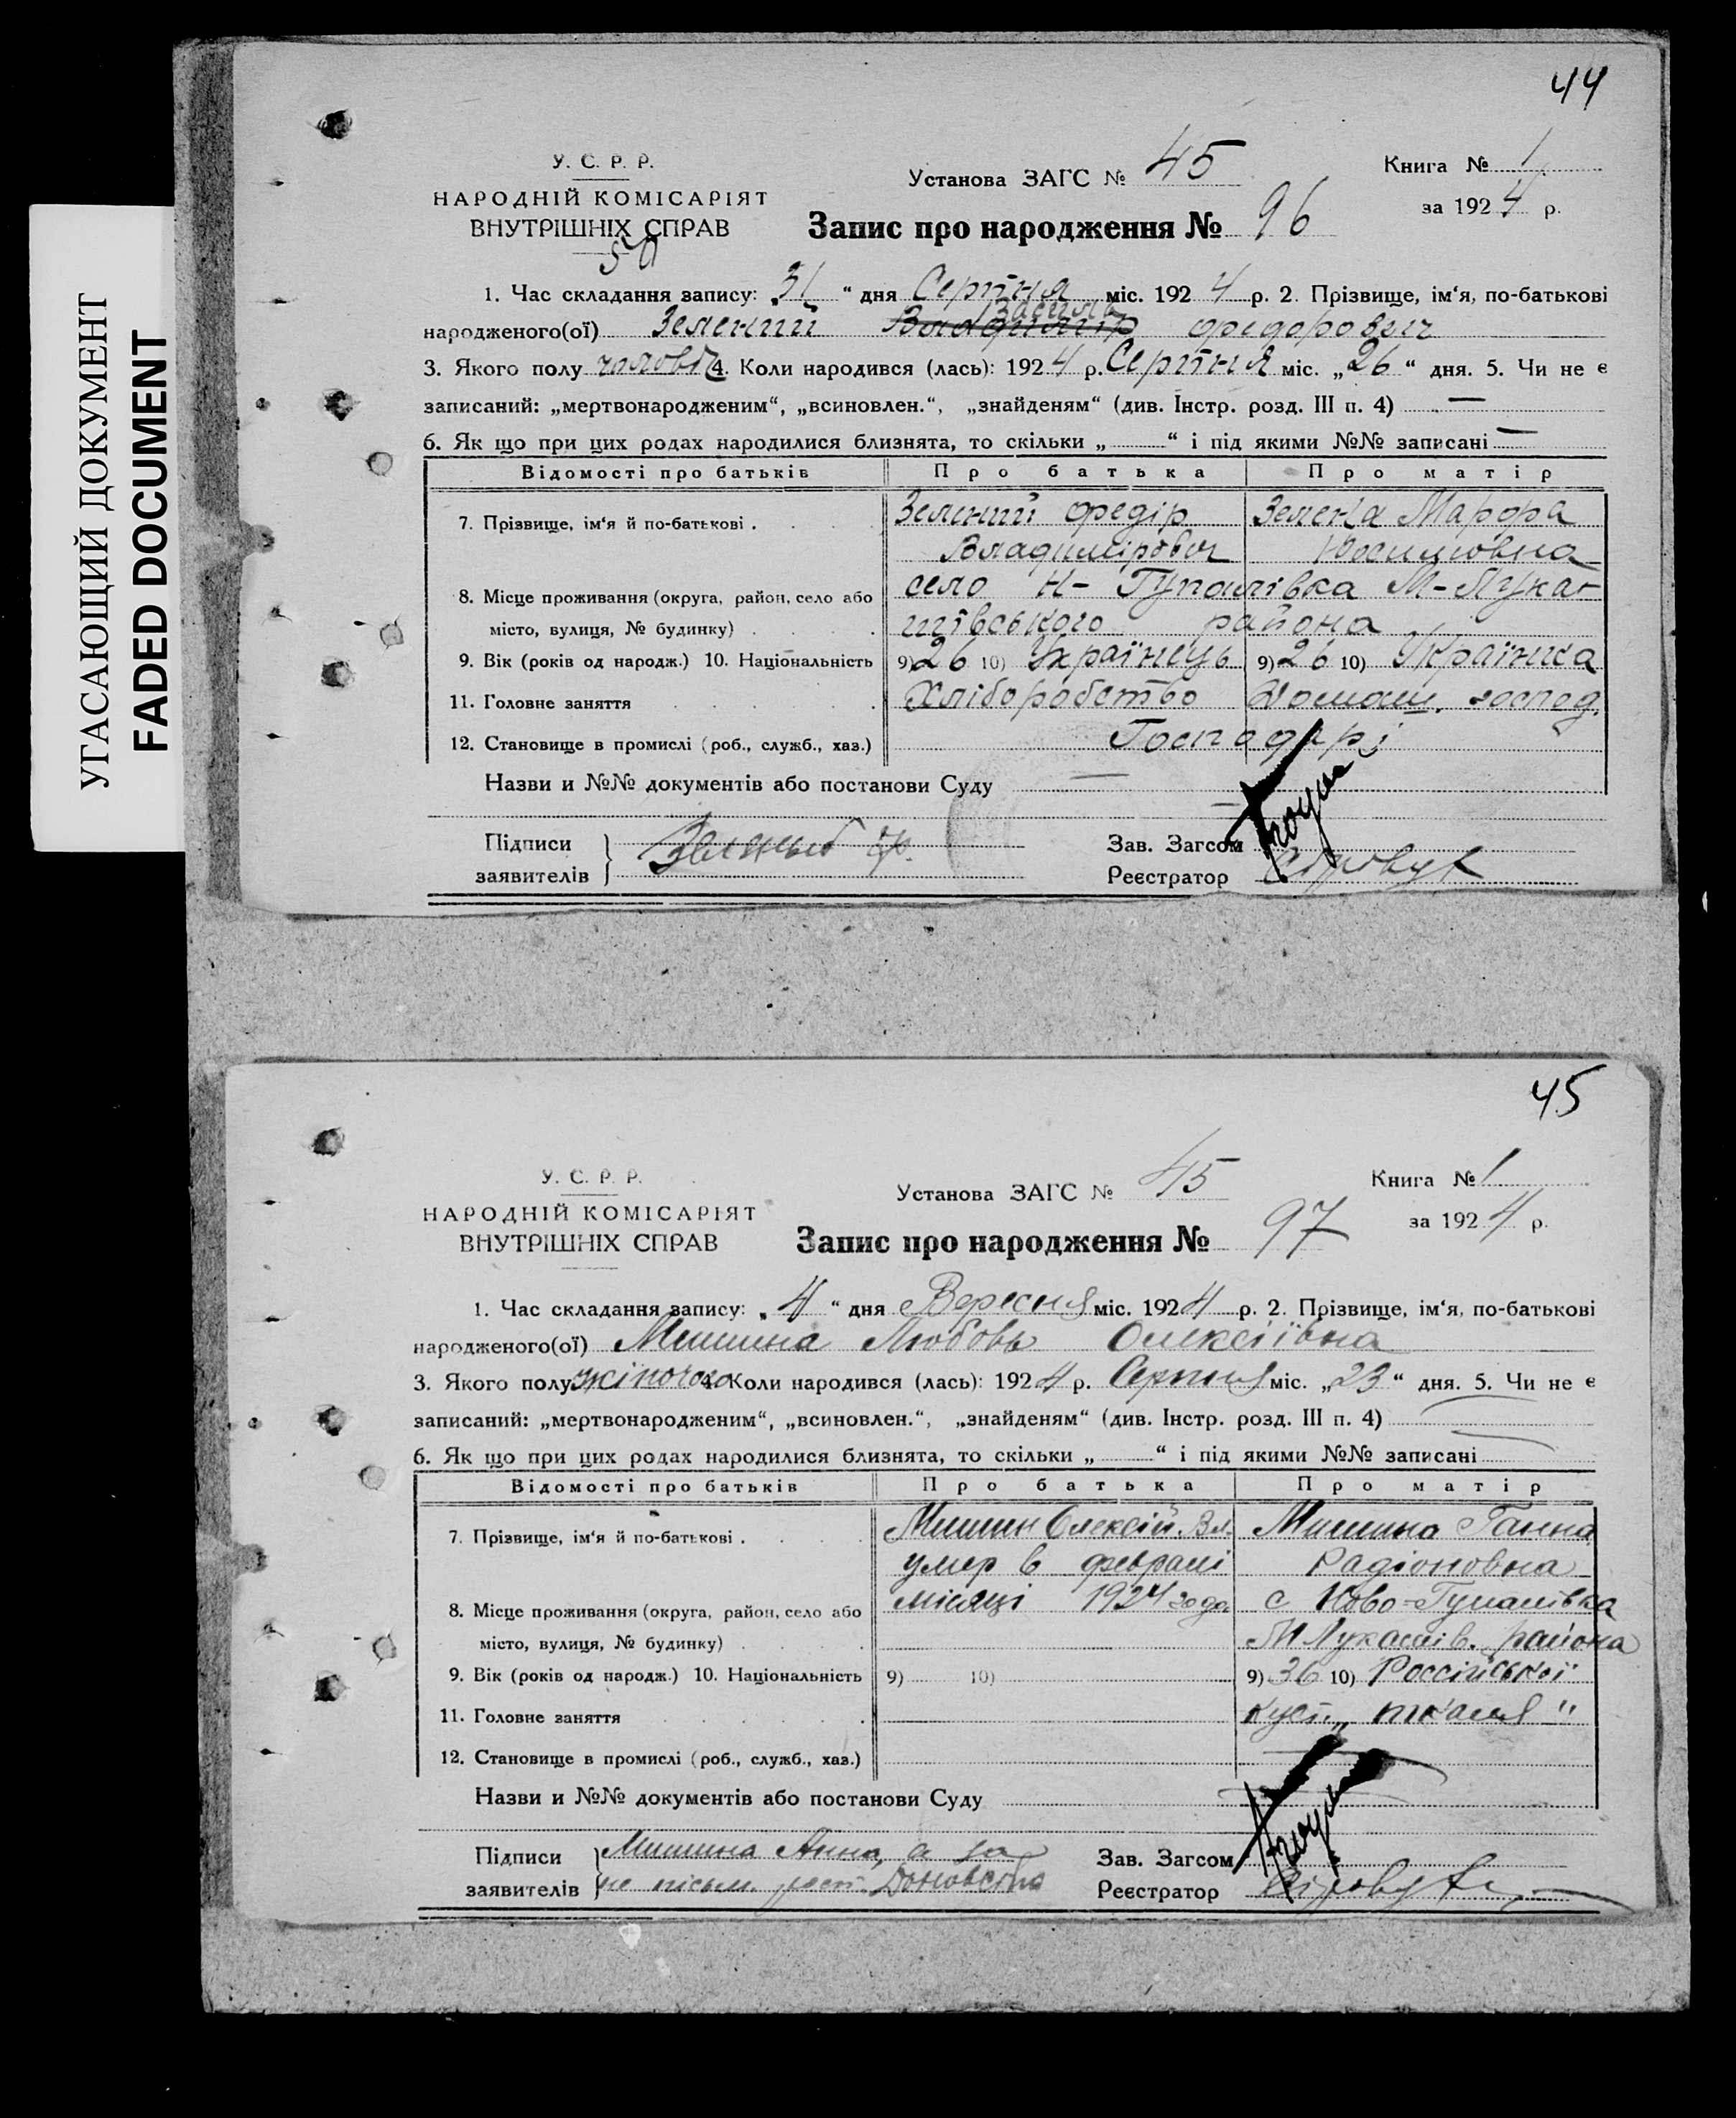 УГАСАЮЩИЙ ДОКУМЕНТ
FADED DOCUMENT
44
У. С. Р. Р.
НАРОДНІЙ КОМІСАРІЯТ
ВНУТРІШНІХ СПРАВ
Установа ЗАГС № 45
Книга № 1
за 1924 р.
Запис про народження № 96
1. Час складання запису: „31“ дня Серпня міс. 1924 р. 2. Прізвище, ім‘я, по-батькові
Василь
народженого(ої) Зелений Владимір Федорович
3. Якого полу чоловіч 4. Коли народився (лась): 1924 р. Серпня міс. „26“ дня. 5. Чи не є
записаний: „мертвонародженим“, „всиновлен.“, „знайденям“ (див. Інстр. розд. III п. 4) —
6. Як що при цих родах народилися близнята, то скільки „ “ і під якими №№ записані —
Відомості про батьків Про батька Про матір
7. Прізвище, ім‘я й по-батькові . Зелений Федір Зелена Марфа
Владимірович
8. Місце проживання (округа, район, село або село Н-Гупалівка М-Лука-
місто, вулиця, № будинку) . шівського района
9. Вік (років од народж.) 10. Національність 9) 26 10) Українець 9) 26 10) Українка
11. Головне заняття Хліборобство Домаш. господ.
12. Становище в промислі (роб., служб., хаз.) Господарі
Назви и №№ документів або постанови Суду
Підписи
заявителів
Зеленый Ф.
Зав. Загсом
Реєстратор
45
У. С. Р. Р.
НАРОДНІЙ КОМІСАРІЯТ
ВНУТРІШНІХ СПРАВ
Установа ЗАГС № 45
Книга № 1
за 1924 р.
Запис про народження № 97
1. Час складання запису: „4“ дня Вересня міс. 1924 р. 2. Прізвище, ім‘я, по-батькові
народженого(ої) Мишина Любовь Олексіївна
3. Якого полу жіночого 4. Коли народився (лась): 1924 р. Серпня міс. „23“ дня. 5. Чи не є
записаний: „мертвонародженим“, „всиновлен.“, „знайденям“ (див. Інстр. розд. III п. 4)
6. Як що при цих родах народилися близнята, то скільки „ “ і під якими №№ записані
Відомості про батьків Про батька Про матір
7. Прізвище, ім‘я й по-батькові . Мишин Олексій Вл. Мишина Ганна
умер в февралі Радіоновна
8. Місце проживання (округа, район, село або місяці 1924 года с Ново-Гупалівка
місто, вулиця, № будинку) . М Лукашів. района
9. Вік (років од народж.) 10. Національність 9) 10) 9) 36 10) Россійської
11. Головне заняття куст. „ткаля“
12. Становище в промислі (роб., служб., хаз.)
Назви и №№ документів або постанови Суду
Підписи
заявителів
Мишина Анна, а за
не письм. расп.
Зав. Загсом
Реєстратор